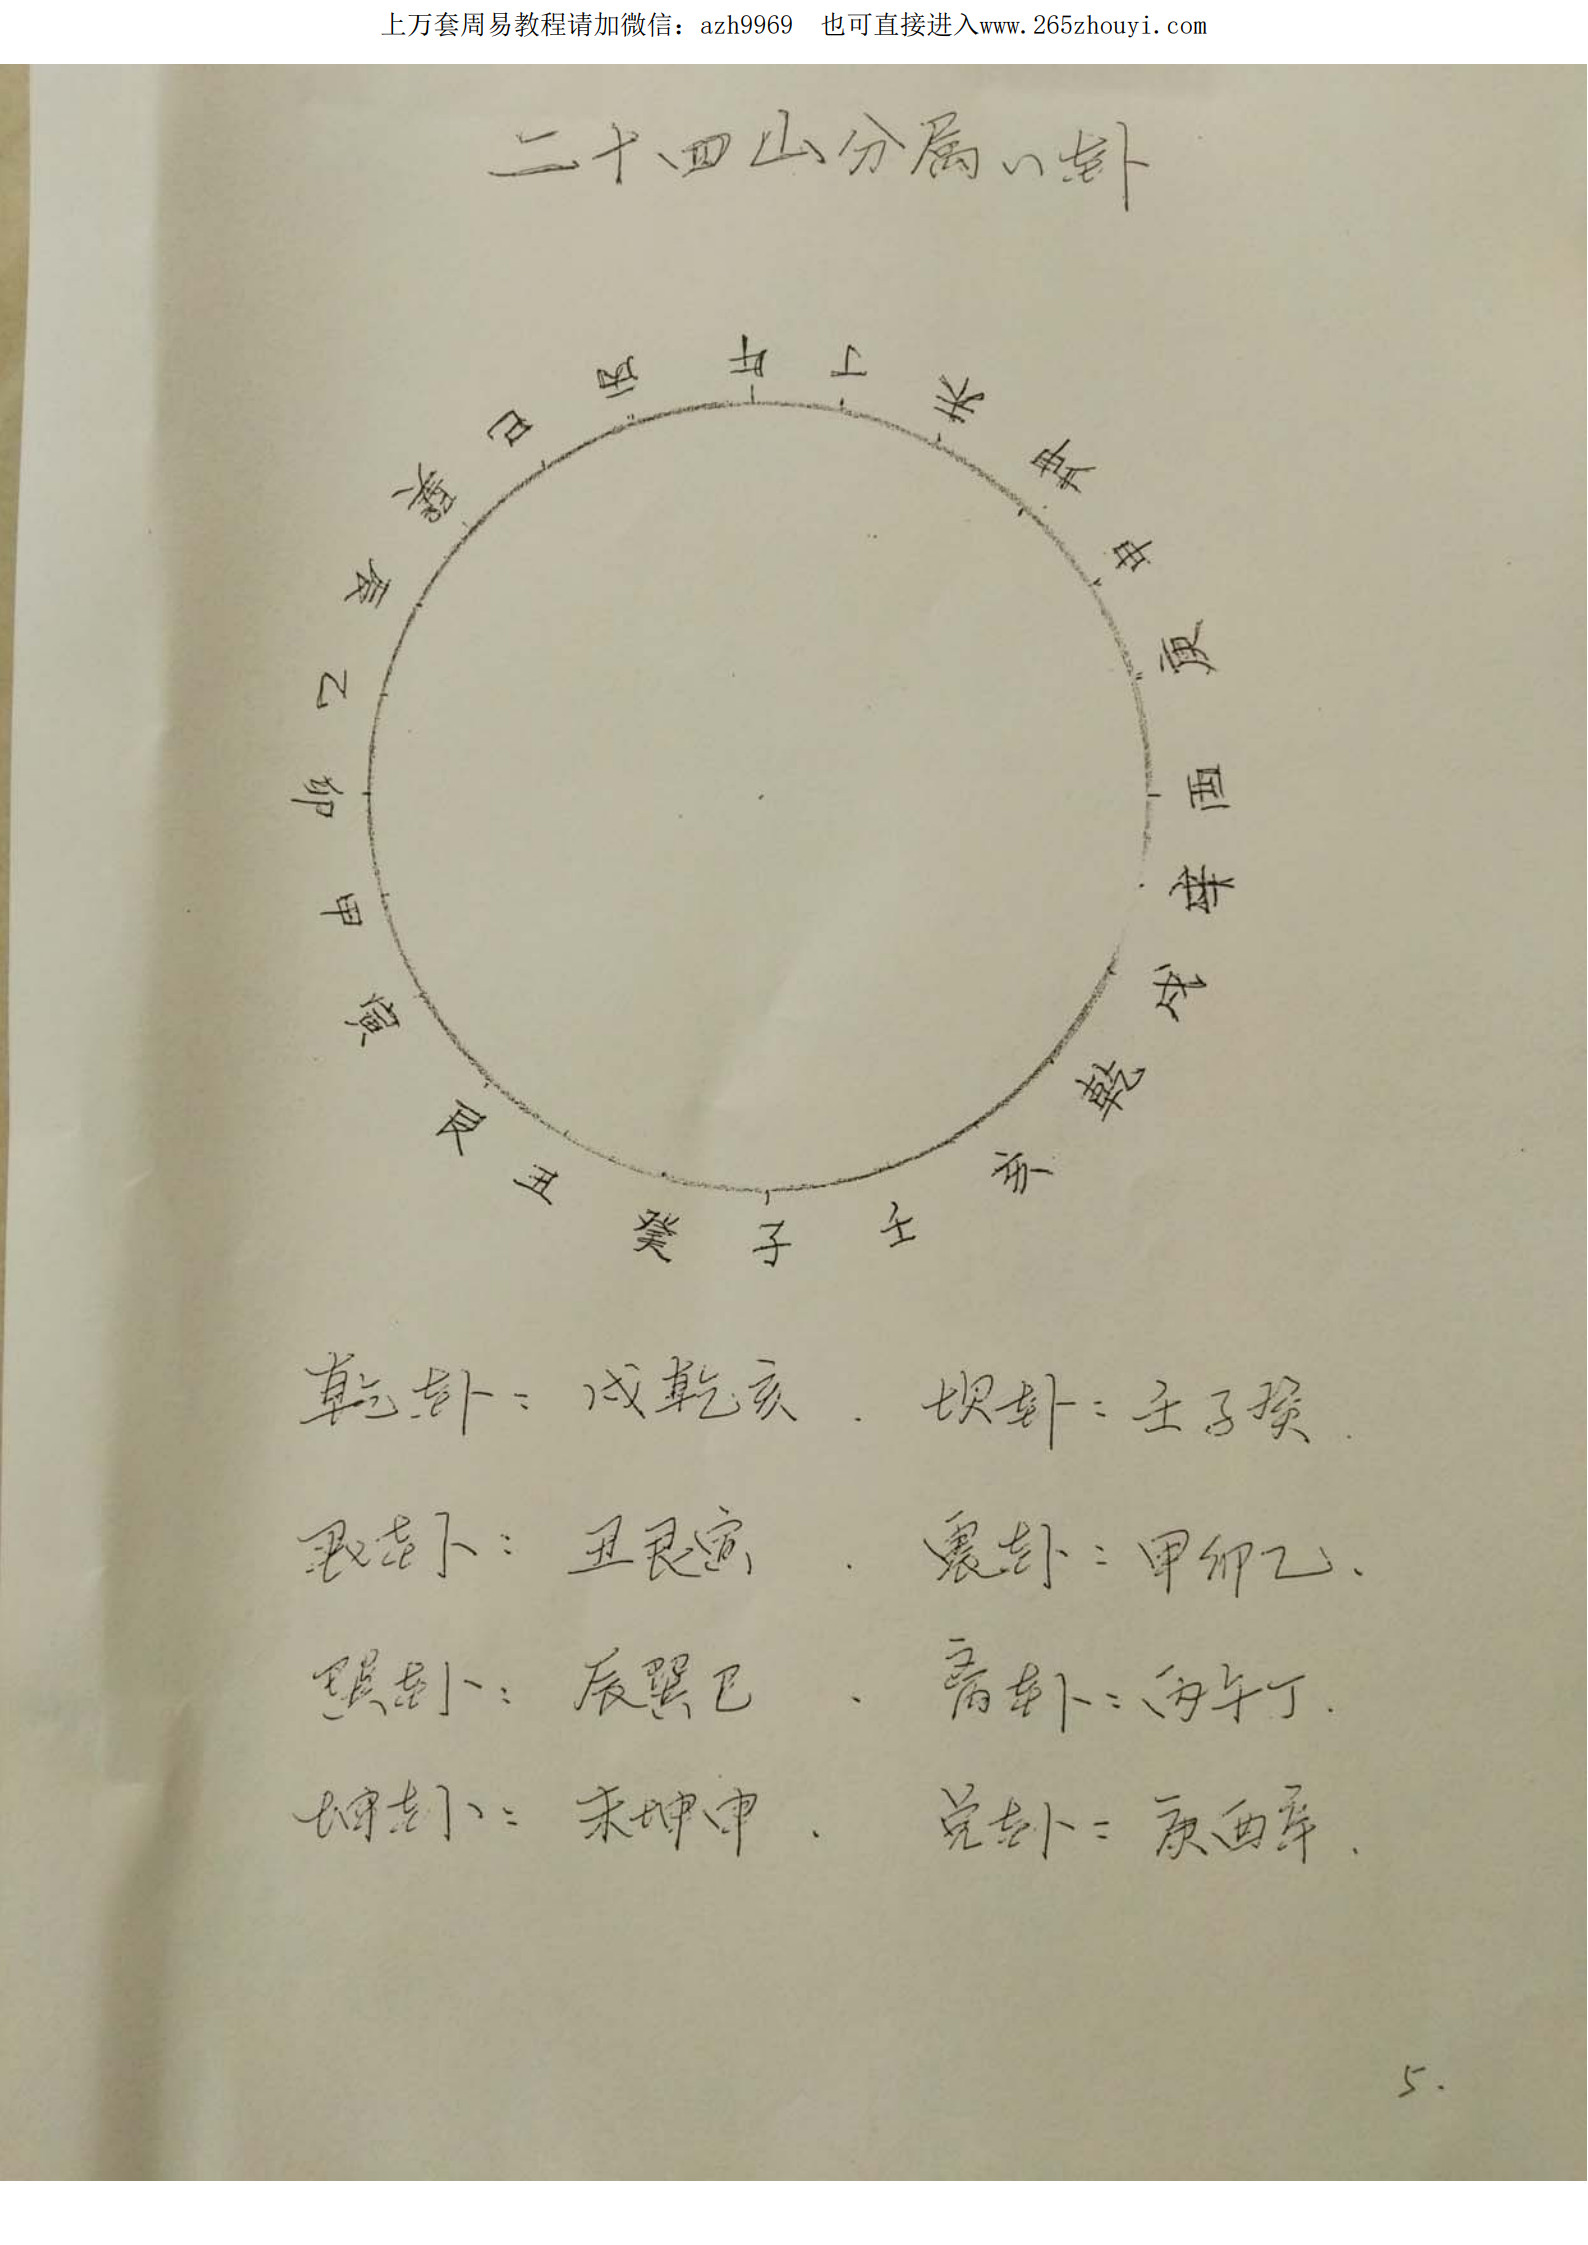 上万套周易教程请加微信：azh9969 也可直接进入www.265zhouyi.com
二十四山分属八卦
午
丁
未
坤
申
庚
酉
辛
戌
乾
亥
壬
子
癸
丑
艮
寅
甲
卯
乙
辰
巽
巳
丙
乾卦：戌乾亥. 坎卦：壬子癸.
艮卦：丑艮寅. 震卦：甲卯乙.
巽卦：辰巽巳. 离卦：丙午丁.
坤卦：未坤申. 兑卦：庚酉辛.
5.